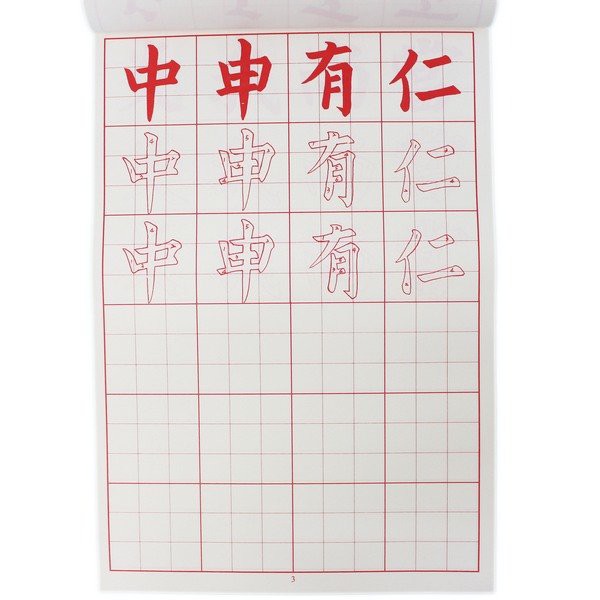 中申有仁
中申有仁
中申有仁
3